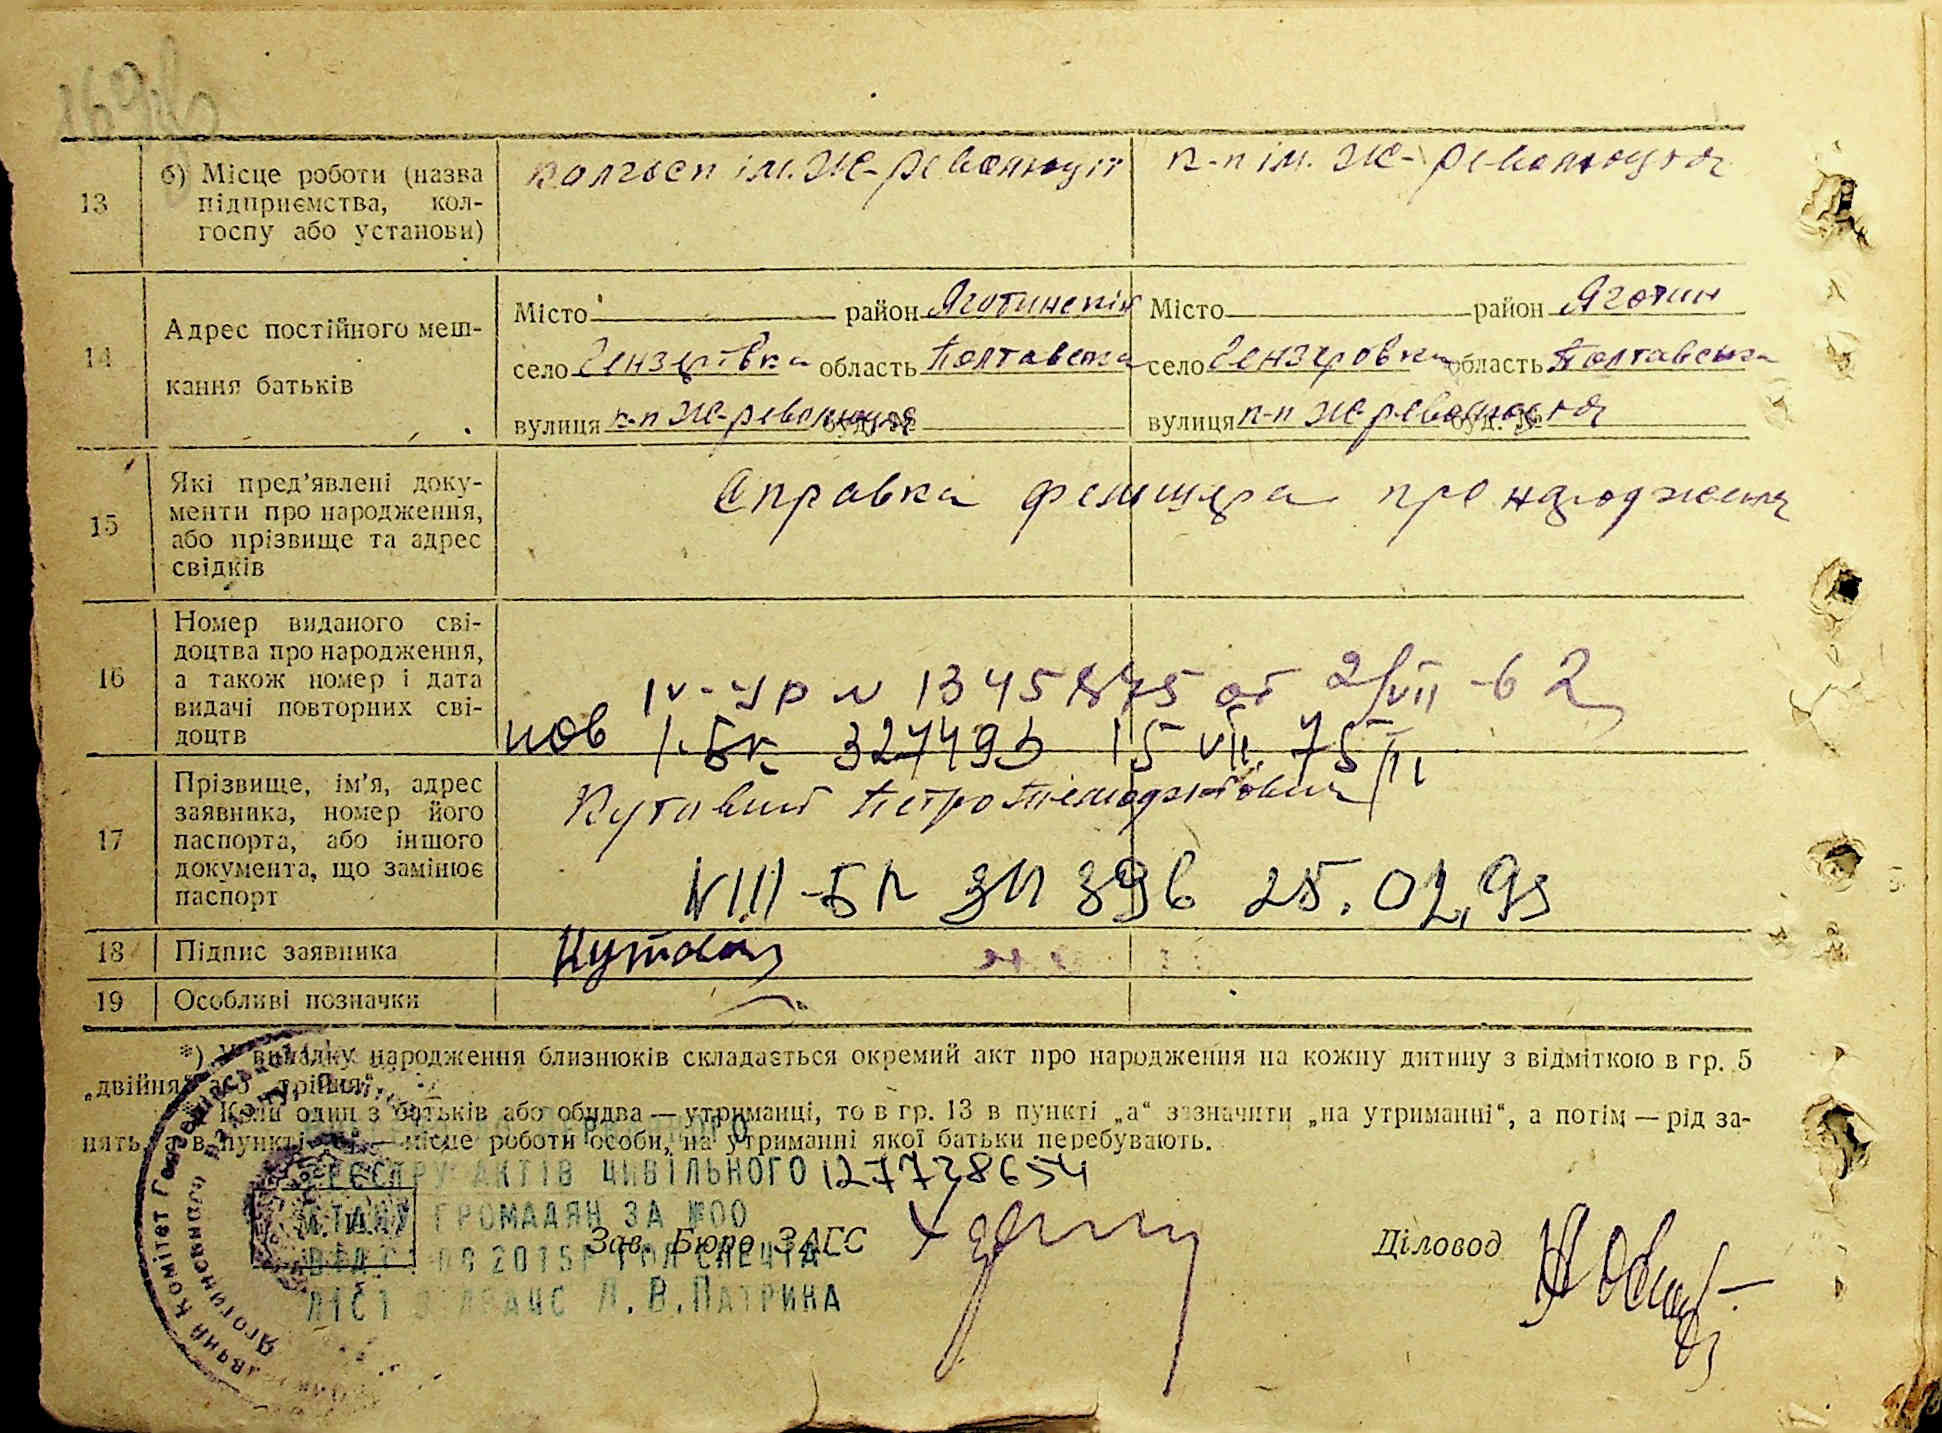 13
б) Місце роботи (назва
підприємства, кол-
госпу або установи)
колгосп ім. Ж-революції
к-п ім. Ж-революції
14
Адрес постійного меш-
кання батьків
Місто район Яготинский
село Гензерівка область Полтавська
вулиця к-п Ж-революції буд. №
Місто район Яготин
село Гензеровка область Полтавська
вулиця к-п Ж революція буд. №
15
Які пред’явлені доку-
менти про народження,
або прізвище та адрес
свідків
Справка фельшера про народження
16
Номер виданого сві-
доцтва про народження,
а також номер і дата
видачі повторних сві-
доцтв
IV-УР № 1345875 от 2/VII-62
нов I-БК 327493 15 VII. 75
17
Прізвище, ім’я, адрес
заявника, номер його
паспорта, або іншого
документа, що замінює
паспорт
Кутовий Петро
VIII-БК ЗП 396 25.02.93
18
Підпис заявника
19
Особливі позначки
*) У випадку народження близнюків складається окремий акт про народження на кожну дитину з відміткою в гр. 5
„двійня“ або „трійня“.
Коли один з батьків або обидва — утриманці, то в гр. 13 в пункті „а“ зазначити „на утриманні“, а потім — рід за-
нять, а в пункті „б“ — місце роботи особи, на утриманні якої батьки перебувають.
РЕЄСТРУ АКТІВ ЦИВІЛЬНОГО 127728654
СТАНУ ГРОМАДЯН ЗА №00
М. П.
Зав. Бюро ЗАГС
Діловод
2015Р ГОЛ СПЕЦІА-
ЛІСТ Л.В.ПАТРИНА